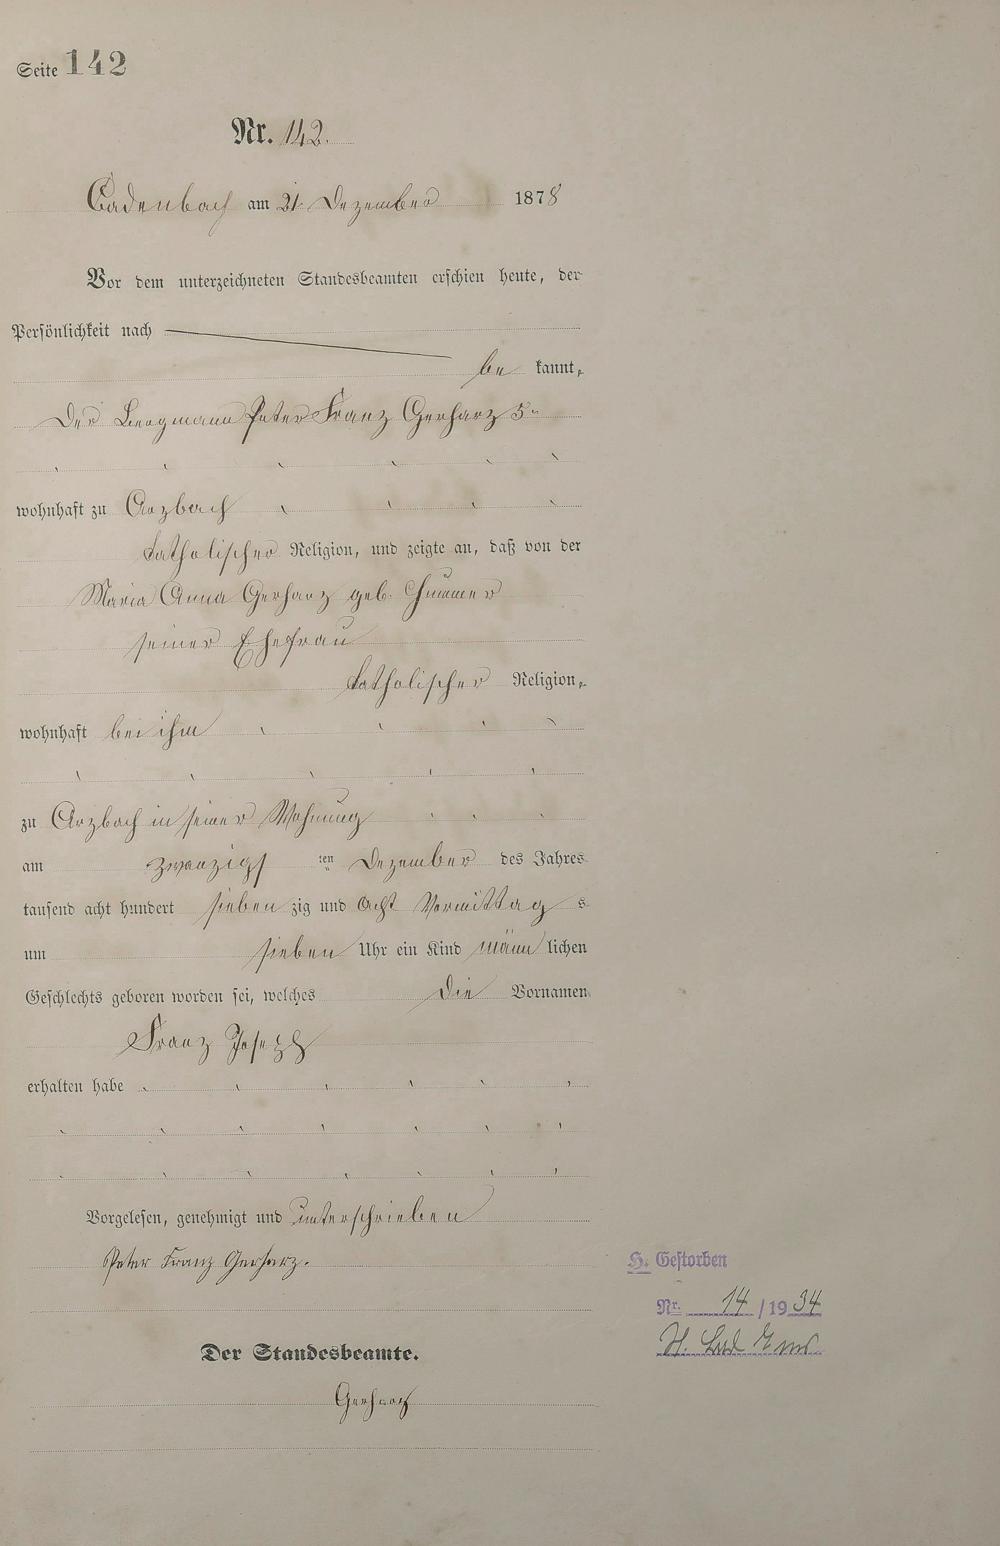 Seite 142
Nr. 142.
Cadenbach am 21. Dezember 1878
Vor dem unterzeichneten Standesbeamten erschien heute, der
Persönlichkeit nach
be kannt,
Der Bergmann Peter Franz Gerharz 5r
wohnhaft zu Arzbach
katholischer Religion, und zeigte an, daß von der
Maria Anna Gerharz geb.
seiner Ehefrau
katholischer Religion,
wohnhaft bei ihm
zu Arzbach in seiner Wohnung
am zwanzigs ten Dezember des Jahres
tausend acht hundert sieben zig und acht Vormittag s
um sieben Uhr ein Kind männ lichen
Geschlechts geboren worden sei, welches die Vornamen
Franz Joseph
erhalten habe
Vorgelesen, genehmigt und unterschrieben
Peter Franz Gerharz.
Der Standesbeamte.
Gerharz
H. Gestorben
Nr. 14 / 19 34
St. Bad Ems